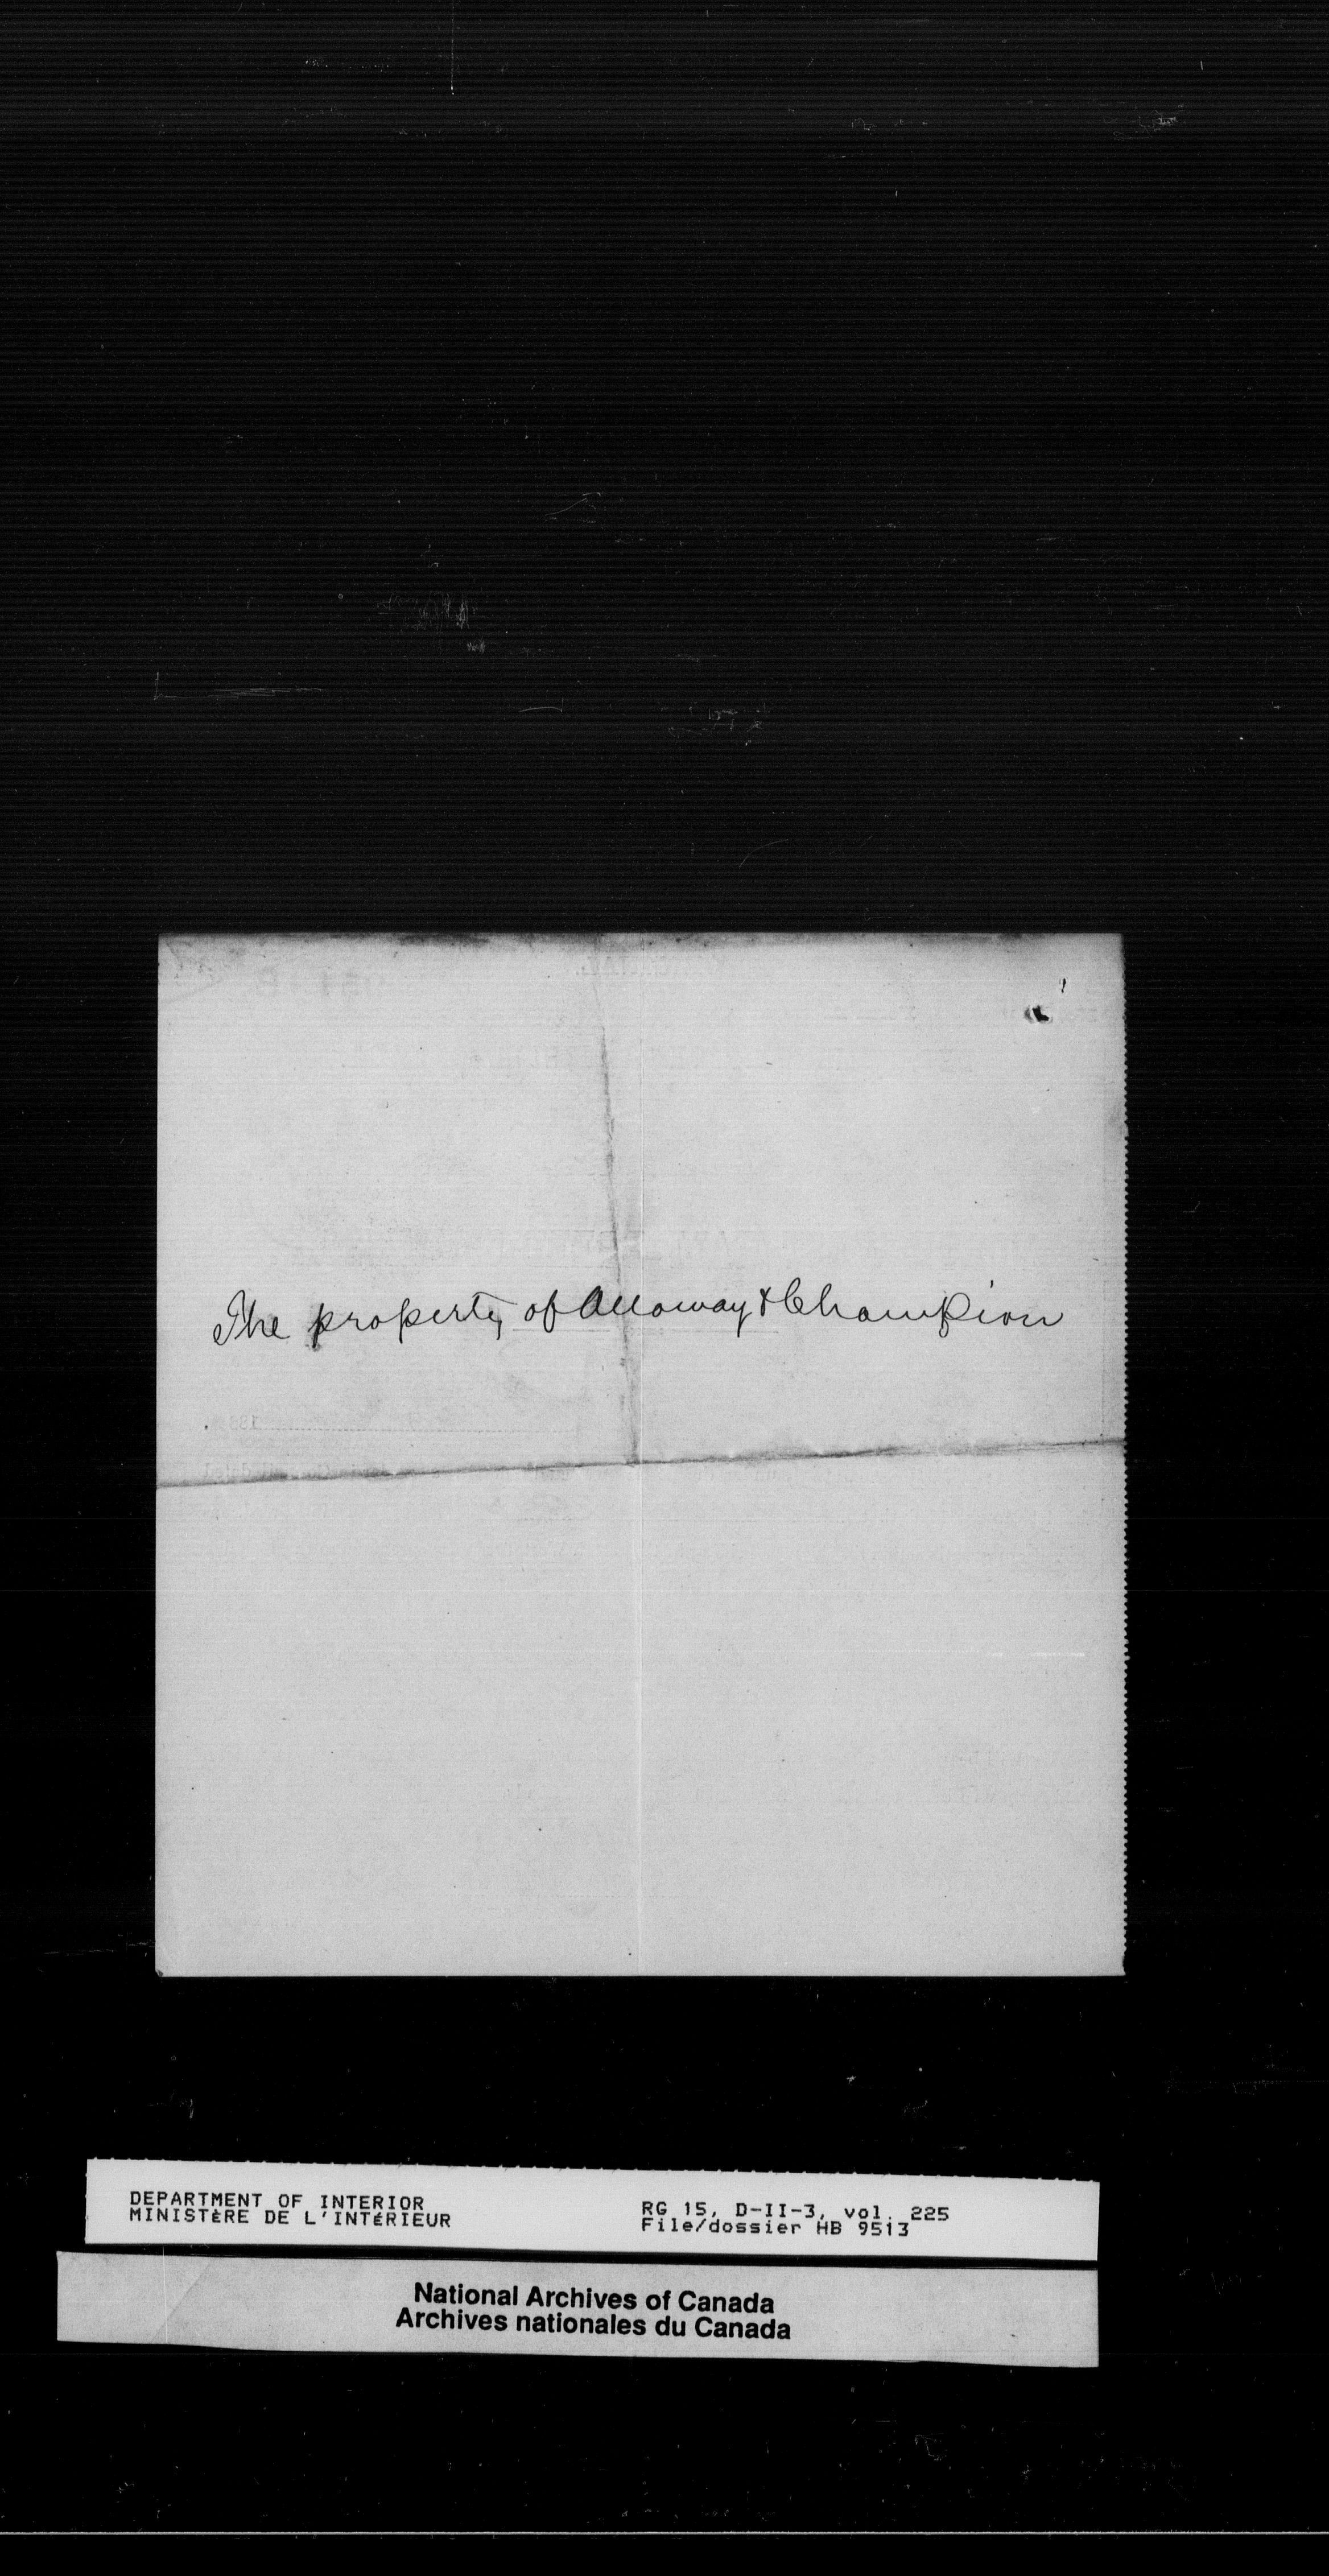 The property of Alloway & Champion
DEPARTMENT OF INTERIOR
MINISTÈRE DE L'INTÉRIEUR
RG 15, D-II-3, vol. 225
File/dossier HB 9513
National Archives of Canada
Archives nationales du Canada